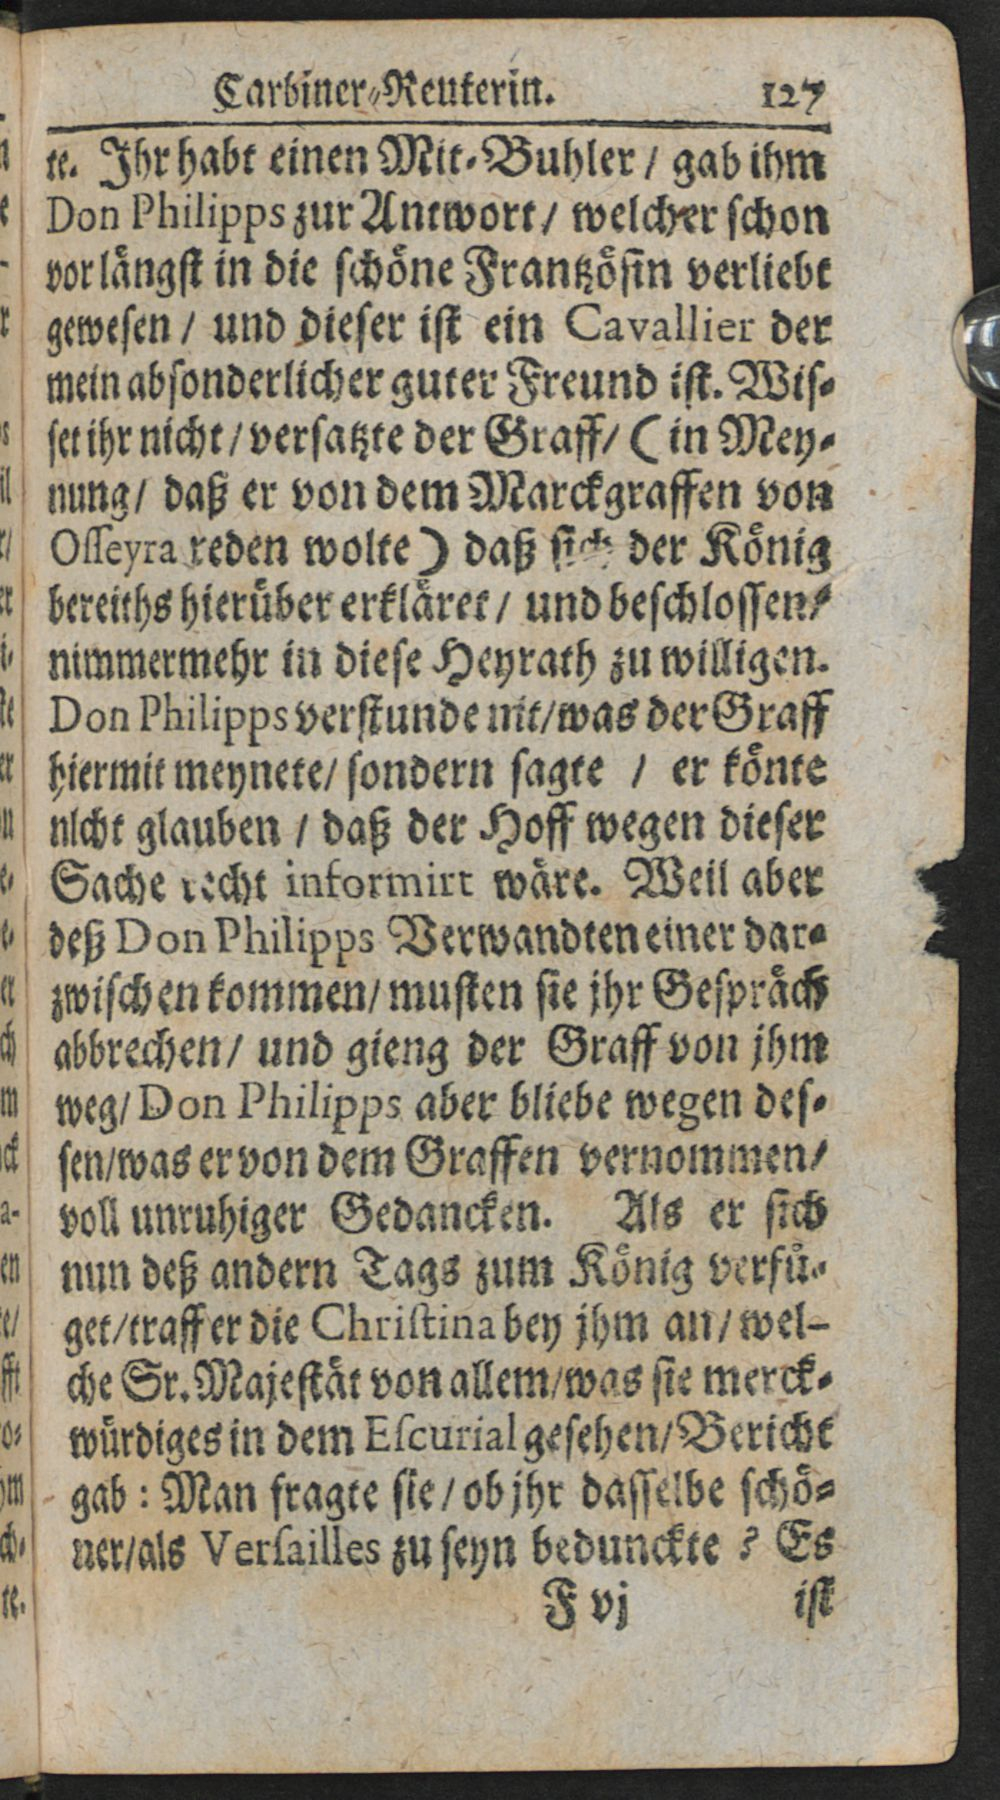 Carbiner-Reuterin. 127
te. Ihr habt einen Mit-Buhler / gab ihm
Don Philipps zur Antwort / welcher schon
vor längst in die schöne Frantzösin verliebt
gewesen / und dieser ist ein Cavallier der
mein absonderlicher guter Freund ist. Wis-
set ihr nicht / versatzte der Graff / (in Mey-
nung / daß er von dem Marckgraffen von
Osseyra reden wolte) daß sich der König
bereiths hierüber erkläret / und beschlossen /
nimmermehr in diese Heyrath zu willigen.
Don Philipps verstunde nit / was der Graff
hiermit meynete / sondern sagte / er könte
nicht glauben / daß der Hoff wegen dieser
Sache recht informirt wäre. Weil aber
deß Don Philipps Verwandten einer dar-
zwischen kommen / musten sie jhr Gespräch
abbrechen / und gieng der Graff von jhm
weg / Don Philipps aber bliebe wegen des-
sen / was er von dem Graffen vernommen /
voll unruhiger Gedancken. Als er sich
nun deß andern Tags zum König verfü-
get / traff er die Christina bey jhm an / wel-
che Sr. Majestät von allem / was sie merck-
würdiges in dem Escurial gesehen / Bericht
gab : Man fragte sie / ob jhr dasselbe schö-
ner / als Versailles zu seyn bedunckte ? Es
F vj ist